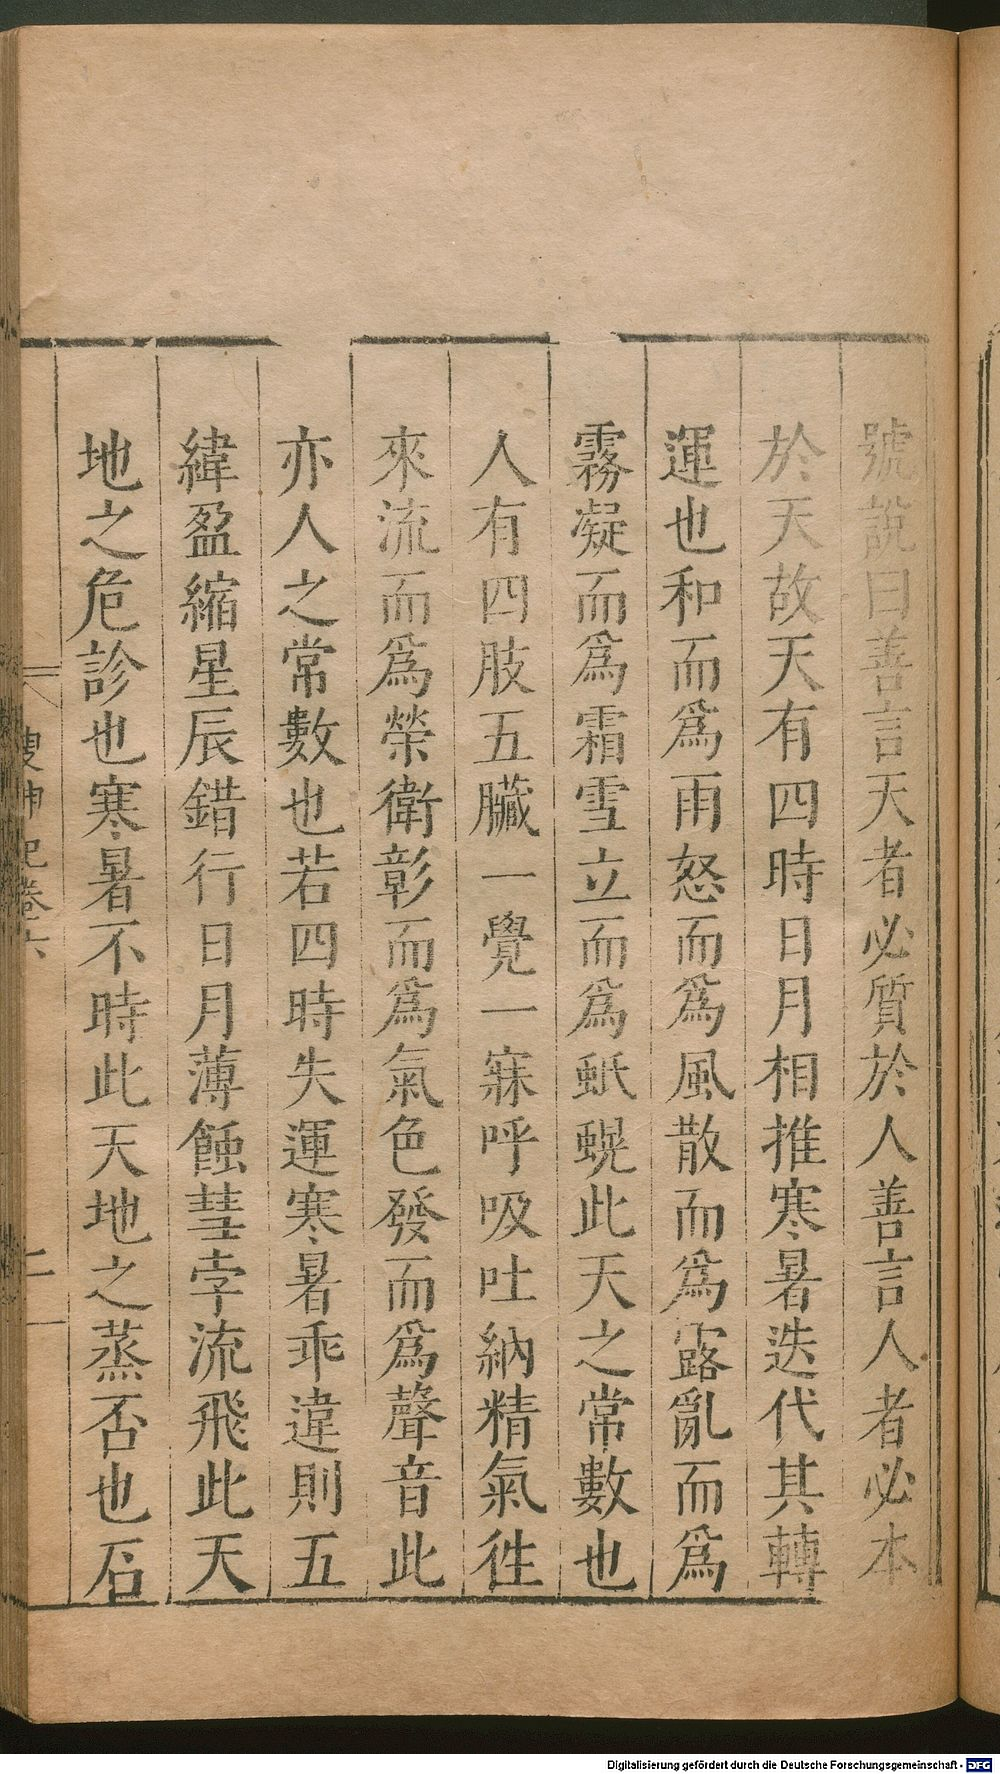 號說曰善言天者必質於人善言人者必本
於天故天有四時日月相推寒暑迭代其轉
運也和而爲雨怒而爲風散而爲露亂而爲
霧凝而爲霜雪立而爲蚔蜺此天之常數也
人有四肢五臟一覺一寐呼吸吐納精氣徃
來流而爲榮衛彰而爲氣色發而爲聲音此
亦人之常數也若四時失運寒暑乖違則五
緯盈縮星辰錯行日月薄蝕彗孛流飛此天
地之危診也寒暑不時此天地之蒸否也石
搜神記卷六
二
Digitalisierung gefördert durch die Deutsche Forschungsgemeinschaft - DFG